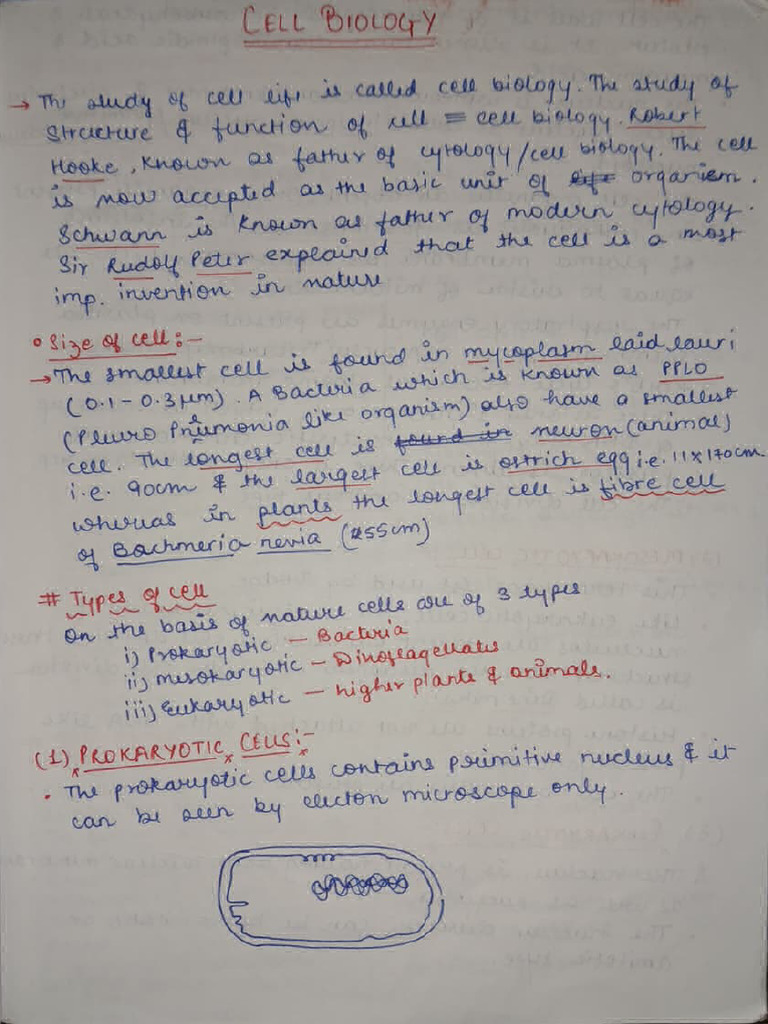 CELL BIOLOGY
→ The study of cell life is called cell biology. The study of
structure & function of cell = cell biology. Robert
Hooke, Known as father of cytology/cell biology. The cell
is now accepted as the basic unit of organism.
Schwann is Known as father of modern cytology.
Sir Rudolf Peter explained that the cell is a most
imp. invention in nature
• Size of cell:-
→ The smallest cell is found in mycoplasm laidlauri
(0.1-0.3μm). A Bacteria which is known as PPLO
(Pleuro Pneumonia like organism) also have a smallest
cell. The longest cell is found in neuron (animal)
i.e. 90cm & the largest cell is ostrich egg i.e. 11x170cm.
whereas in plants the longest cell is fibre cell
of Bachmeria nevia (55cm)
# Types of cell
On the basis of nature cells are of 3 types
i) Prokaryotic - Bacteria
ii) Mesokaryotic - Dinoflagellates
iii) Eukaryotic - higher plants & animals.
(1) PROKARYOTIC CELLS:-
• The prokaryotic cells contains primitive nucleus & it
can be seen by electon microscope only.